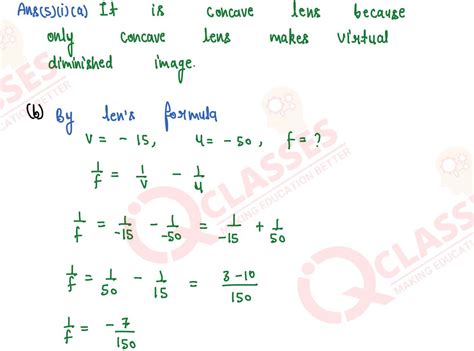 Ans(5)(i)(a) It is concave lens because
only concave lens makes virtual
diminished image.
(b) By len's formula
V = - 15, u = - 50, f = ?
1/f = 1/V - 1/u
1/f = 1/-15 - 1/-50 = 1/-15 + 1/50
1/f = 1/50 - 1/15 = 3-10/150
1/f = -7/150
IQ CLASSES
MAKING EDUCATION BETTER